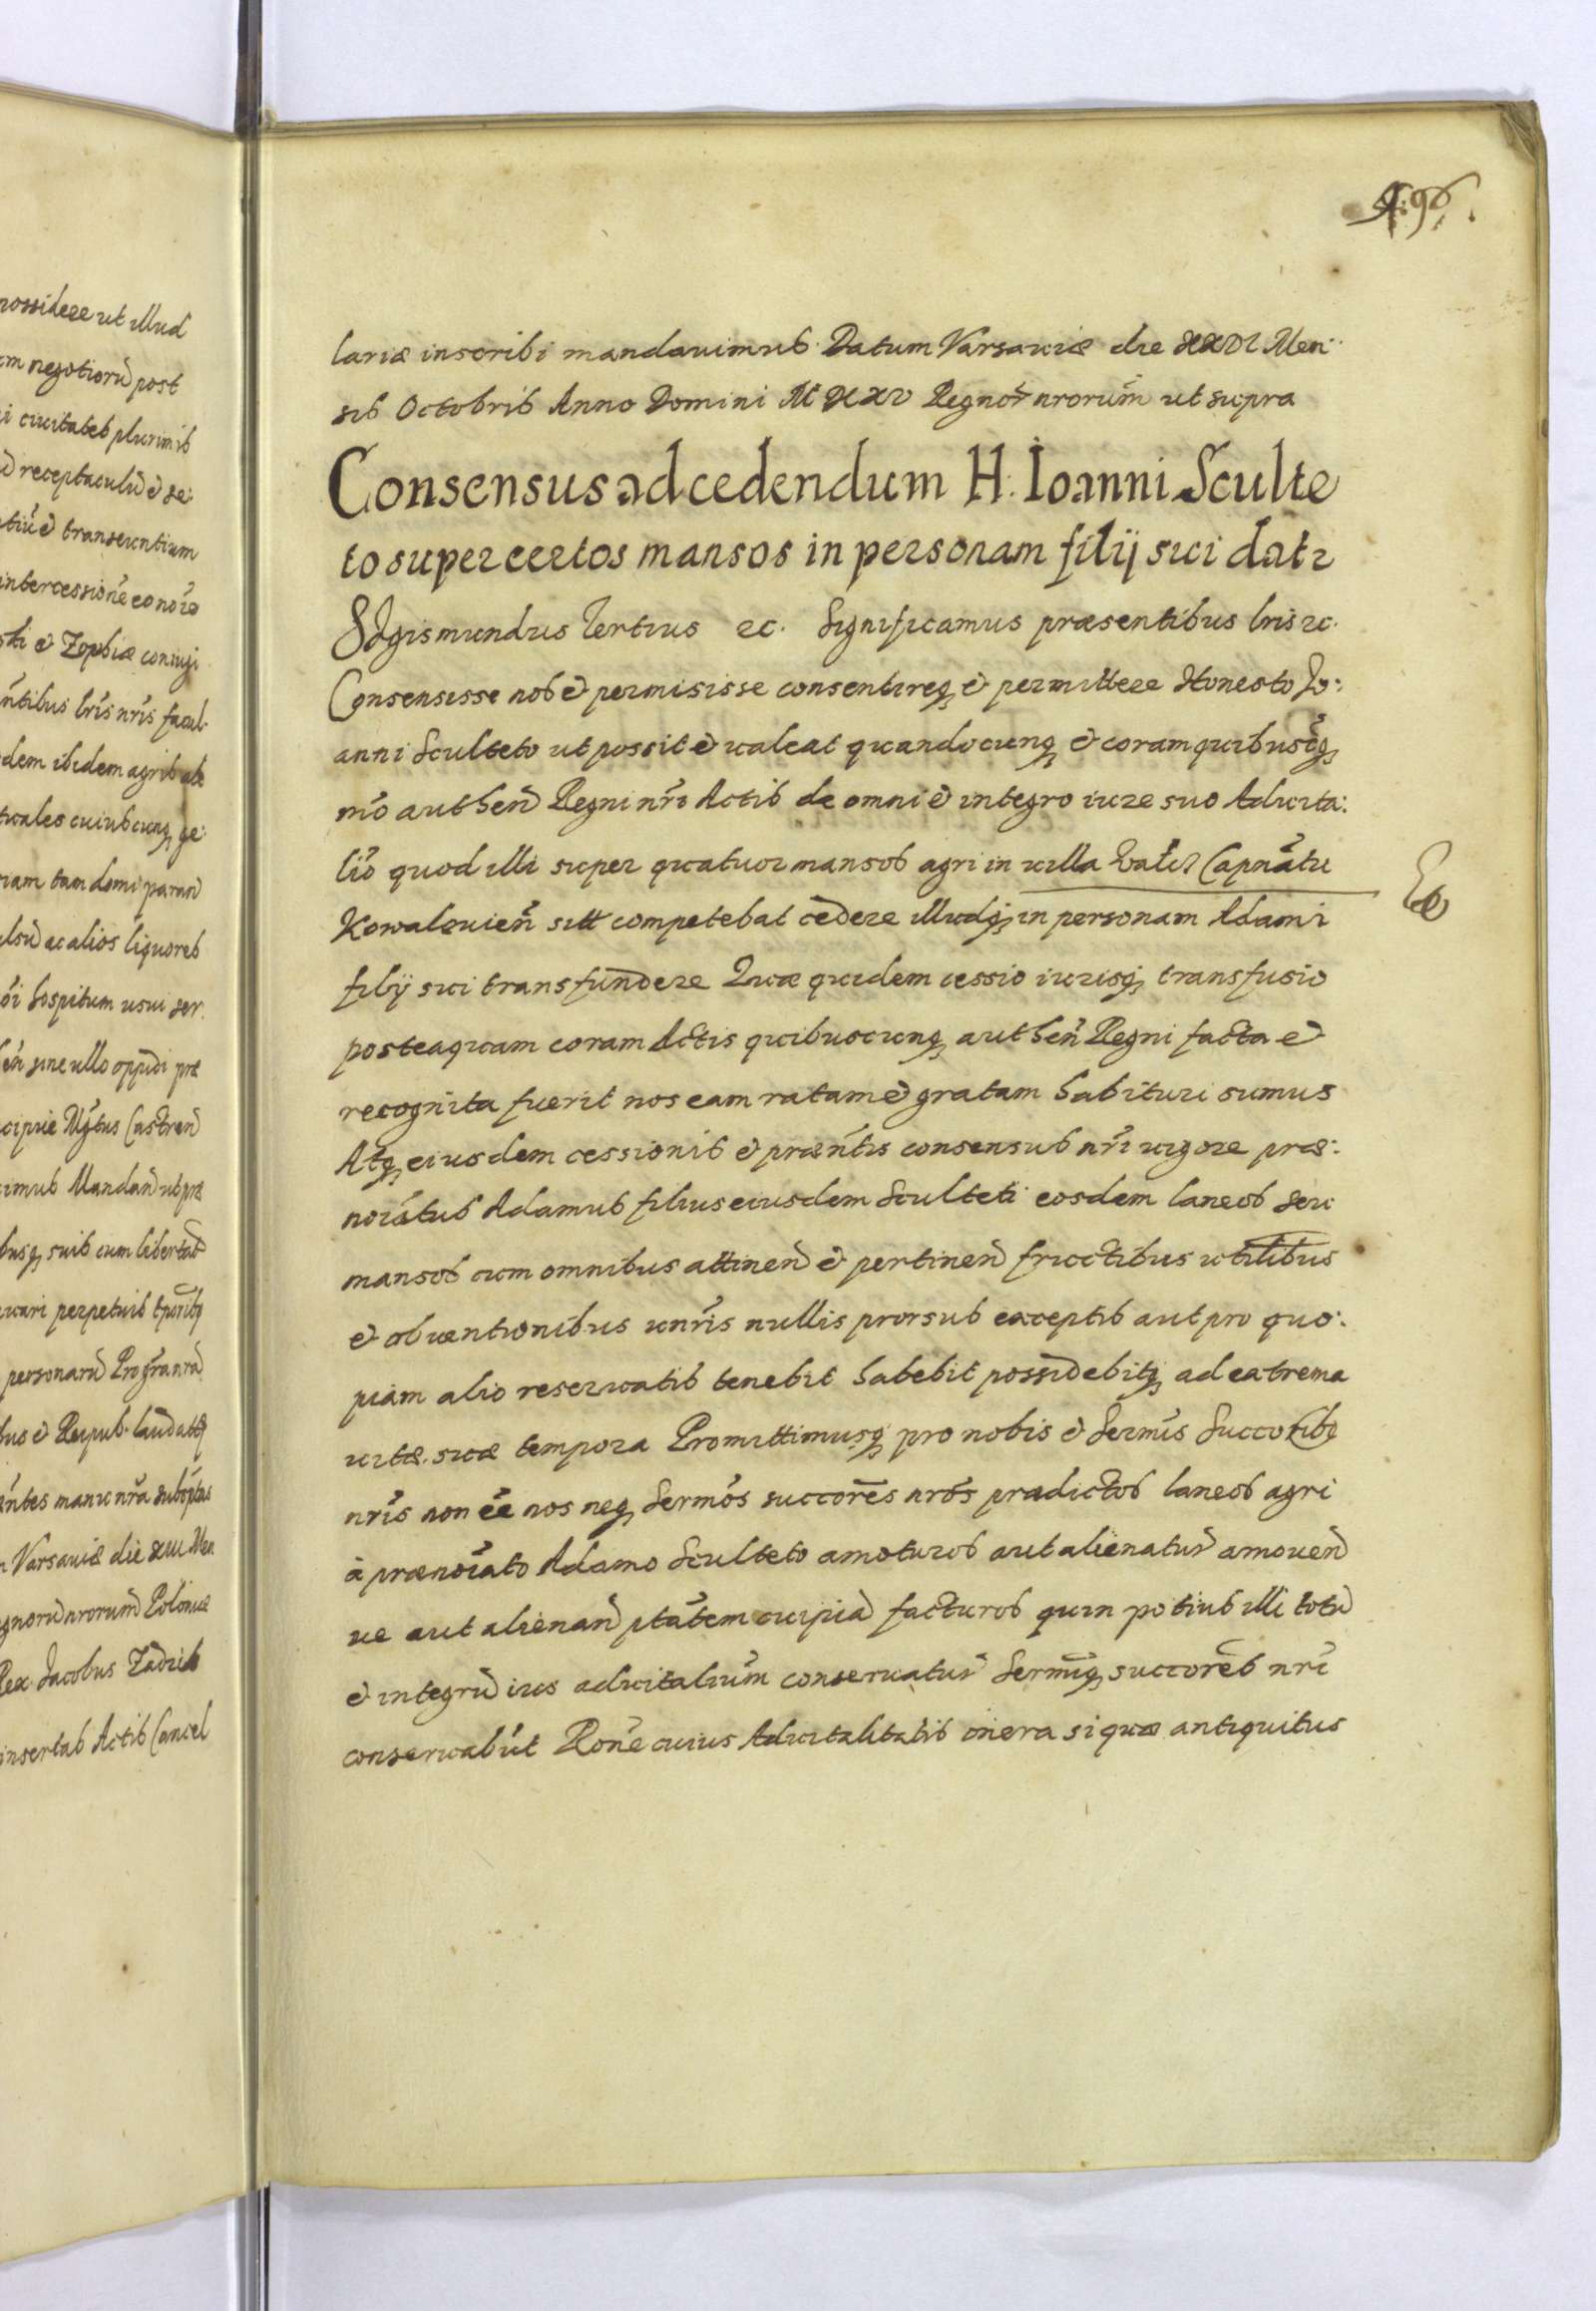 possidere ut illud
negotiorũ post
civitates plurimis
receptaculũ & se:
transeuntium
intercessionẽ
& Zophiæ coniugi
lr̃is nr̃is facul
dem ibidem agris
cuiuscunq ge:
tam domi
ac alios liquores
hospitum usui ser
sine ullo oppidi præ
Castren̄
Mandan̄ ut præ
suis cum libertat̄
perpetuis
personarũ
& Reipub.
manu nr̃a
Varsaviæ die Men
nrorum̃ Poloniæ
Rex Jacobus Zadzik
insertas Actis Cancel
496.
lariæ inscribi mandavimus. Datum Varsaviæ die XXVI Men:
sis Octobris Anno Domini MDCXV Regnor̃ nrorum̃ ut supra
Consensus ad cedendum H. Ioanni Sculte
to super certos mansos in personam filij sui datr
Sigismundus Tertius ec. Significamus præsentibus lr̃is ec.
Consensisse nos & permisisse consentireq & permittere Honesto Jo:
anni Sculteto ut possit & valeat quandocunq & coram quibusc̃q
mõ authen̄ Regni nr̃i Actis de omni & integro iure suo Advita:
liõ quod illi super quatuor mansos agri in villa Capnãtu
Kowalevien̄ sitt competebat cedere illudq in personam Adami
filij sui transfundere Quæ quidem cessio iurisq transfusio
posteaquam coram Actis quibuscunq authen̄ Regni facta &
recognita fuerit nos eam ratam & gratam habituri sumus
Atq eiusdem cessionis & præñtis consensus nr̃i vigore præ:
noĩatus Adamus filius eiusdem Sculteti eosdem laneos seu
mansos cum omnibus attinen̄ & pertinen̄ fructibus utilitibus
& obventionibus univ̄ris nullis prorsus exceptis aut pro quo:
piam alio reservatis tenebit habebit possidebitq ad extrema
vitæ suæ tempora Promittimusq pro nobis & Sermĩs Succoribq
nr̃is non ẽe nos neq Sermõs succores̃ nrõs prædictos laneos agri
à prænoĩato Adamo Sculteto amoturos aut alienatur̃ amoven̄
ve aut alienan̄ ptãtem cuipiã facturos quin potius illi totũ
& integrũ ius advitalium̃ conservatur̃ Sermĩq succores̃ nr̃i
conservabũt Ronẽ cuius Advitalitatis onera si quæ antiquitus